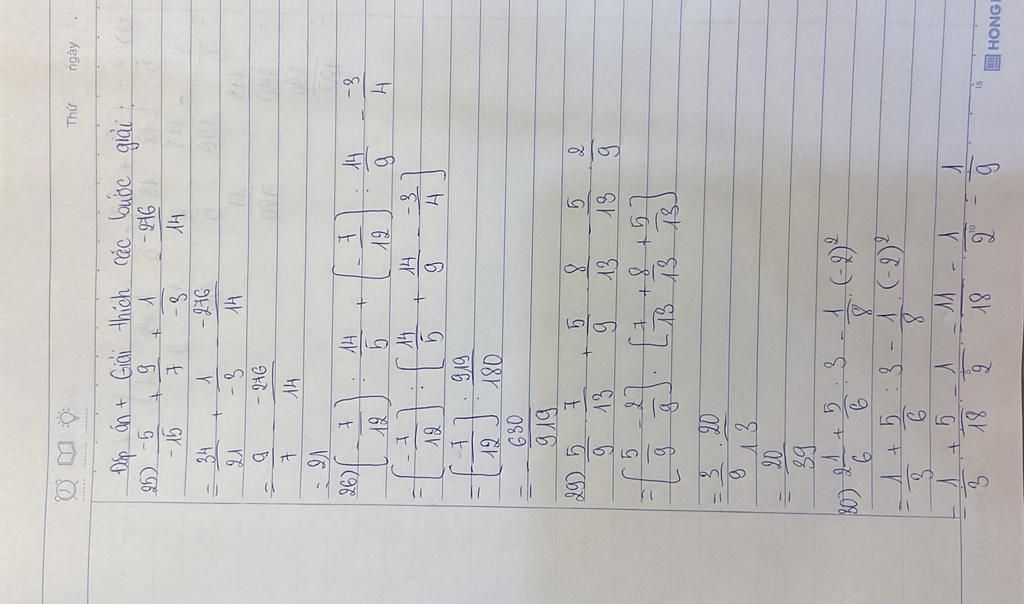 Thứ ngày
Đáp án + Giải thích các bước giải:
25) -5/-15 + 9/7 + 1/-3 - -276/14
= 34/21 + 1/-3 - -276/14
= 9/7 - -276/14
= 21
26) (-7/12) : 14/5 + (-7/12) : 14/9 - -3/4
= (-7/12) : [14/5 + 14/9 - -3/4]
= (-7/12) : 919/180
= - 630/919
29) 5/9 . 7/13 + 5/9 . 8/13 - 5/13 . 2/9
= [5/9 - 2/9] . [7/13 + 8/13 + 5/13]
= 3/9 . 20/13
= 20/39
30) 21/6 + 5/6 : 3 - 1/8 . (-2)²
= 1/3 + 5/6 : 3 - 1/8 . (-2)²
= 1/3 + 5/18 - 1/2 = 11/18 - 1/2 = 1/9
15